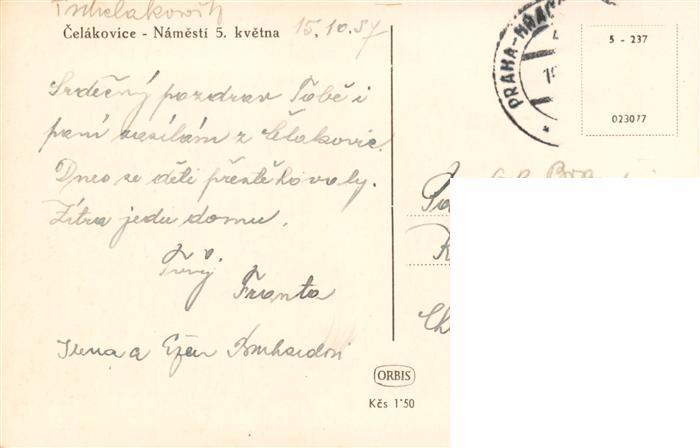 Tschelakowitz
Čelákovice - Náměstí 5. května 15.10.57
Srdečný pozdrav Tobě i
paní zasílám z Čelakovic.
Dnes se děti přestěhovaly.
Zítra jedu domu.
Tvůj
Franta
Irena a Evžen
ORBIS
Kčs 1·50
PRAHA-HRA
5 - 237
023077